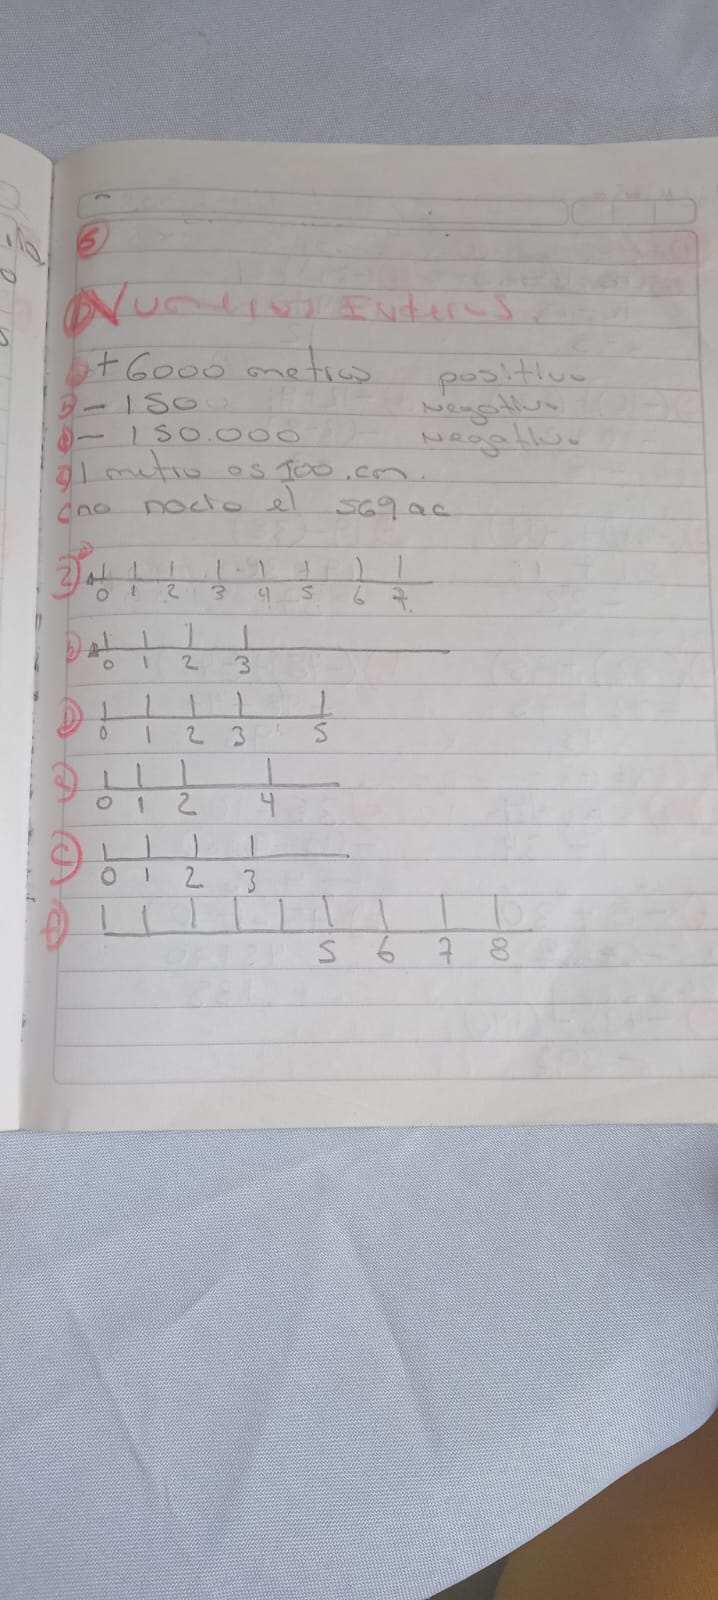 5
Numeros Enteros
+ 6000 metros positivo
- 150 negativo
- 150.000 negativo
1 metro es 100.cm.
no nacto el 569 ac
2
0 1 2 3 4 5 6 7
0 1 2 3
0 1 2 3 5
0 1 2 4
0 1 2 3
5 6 7 8